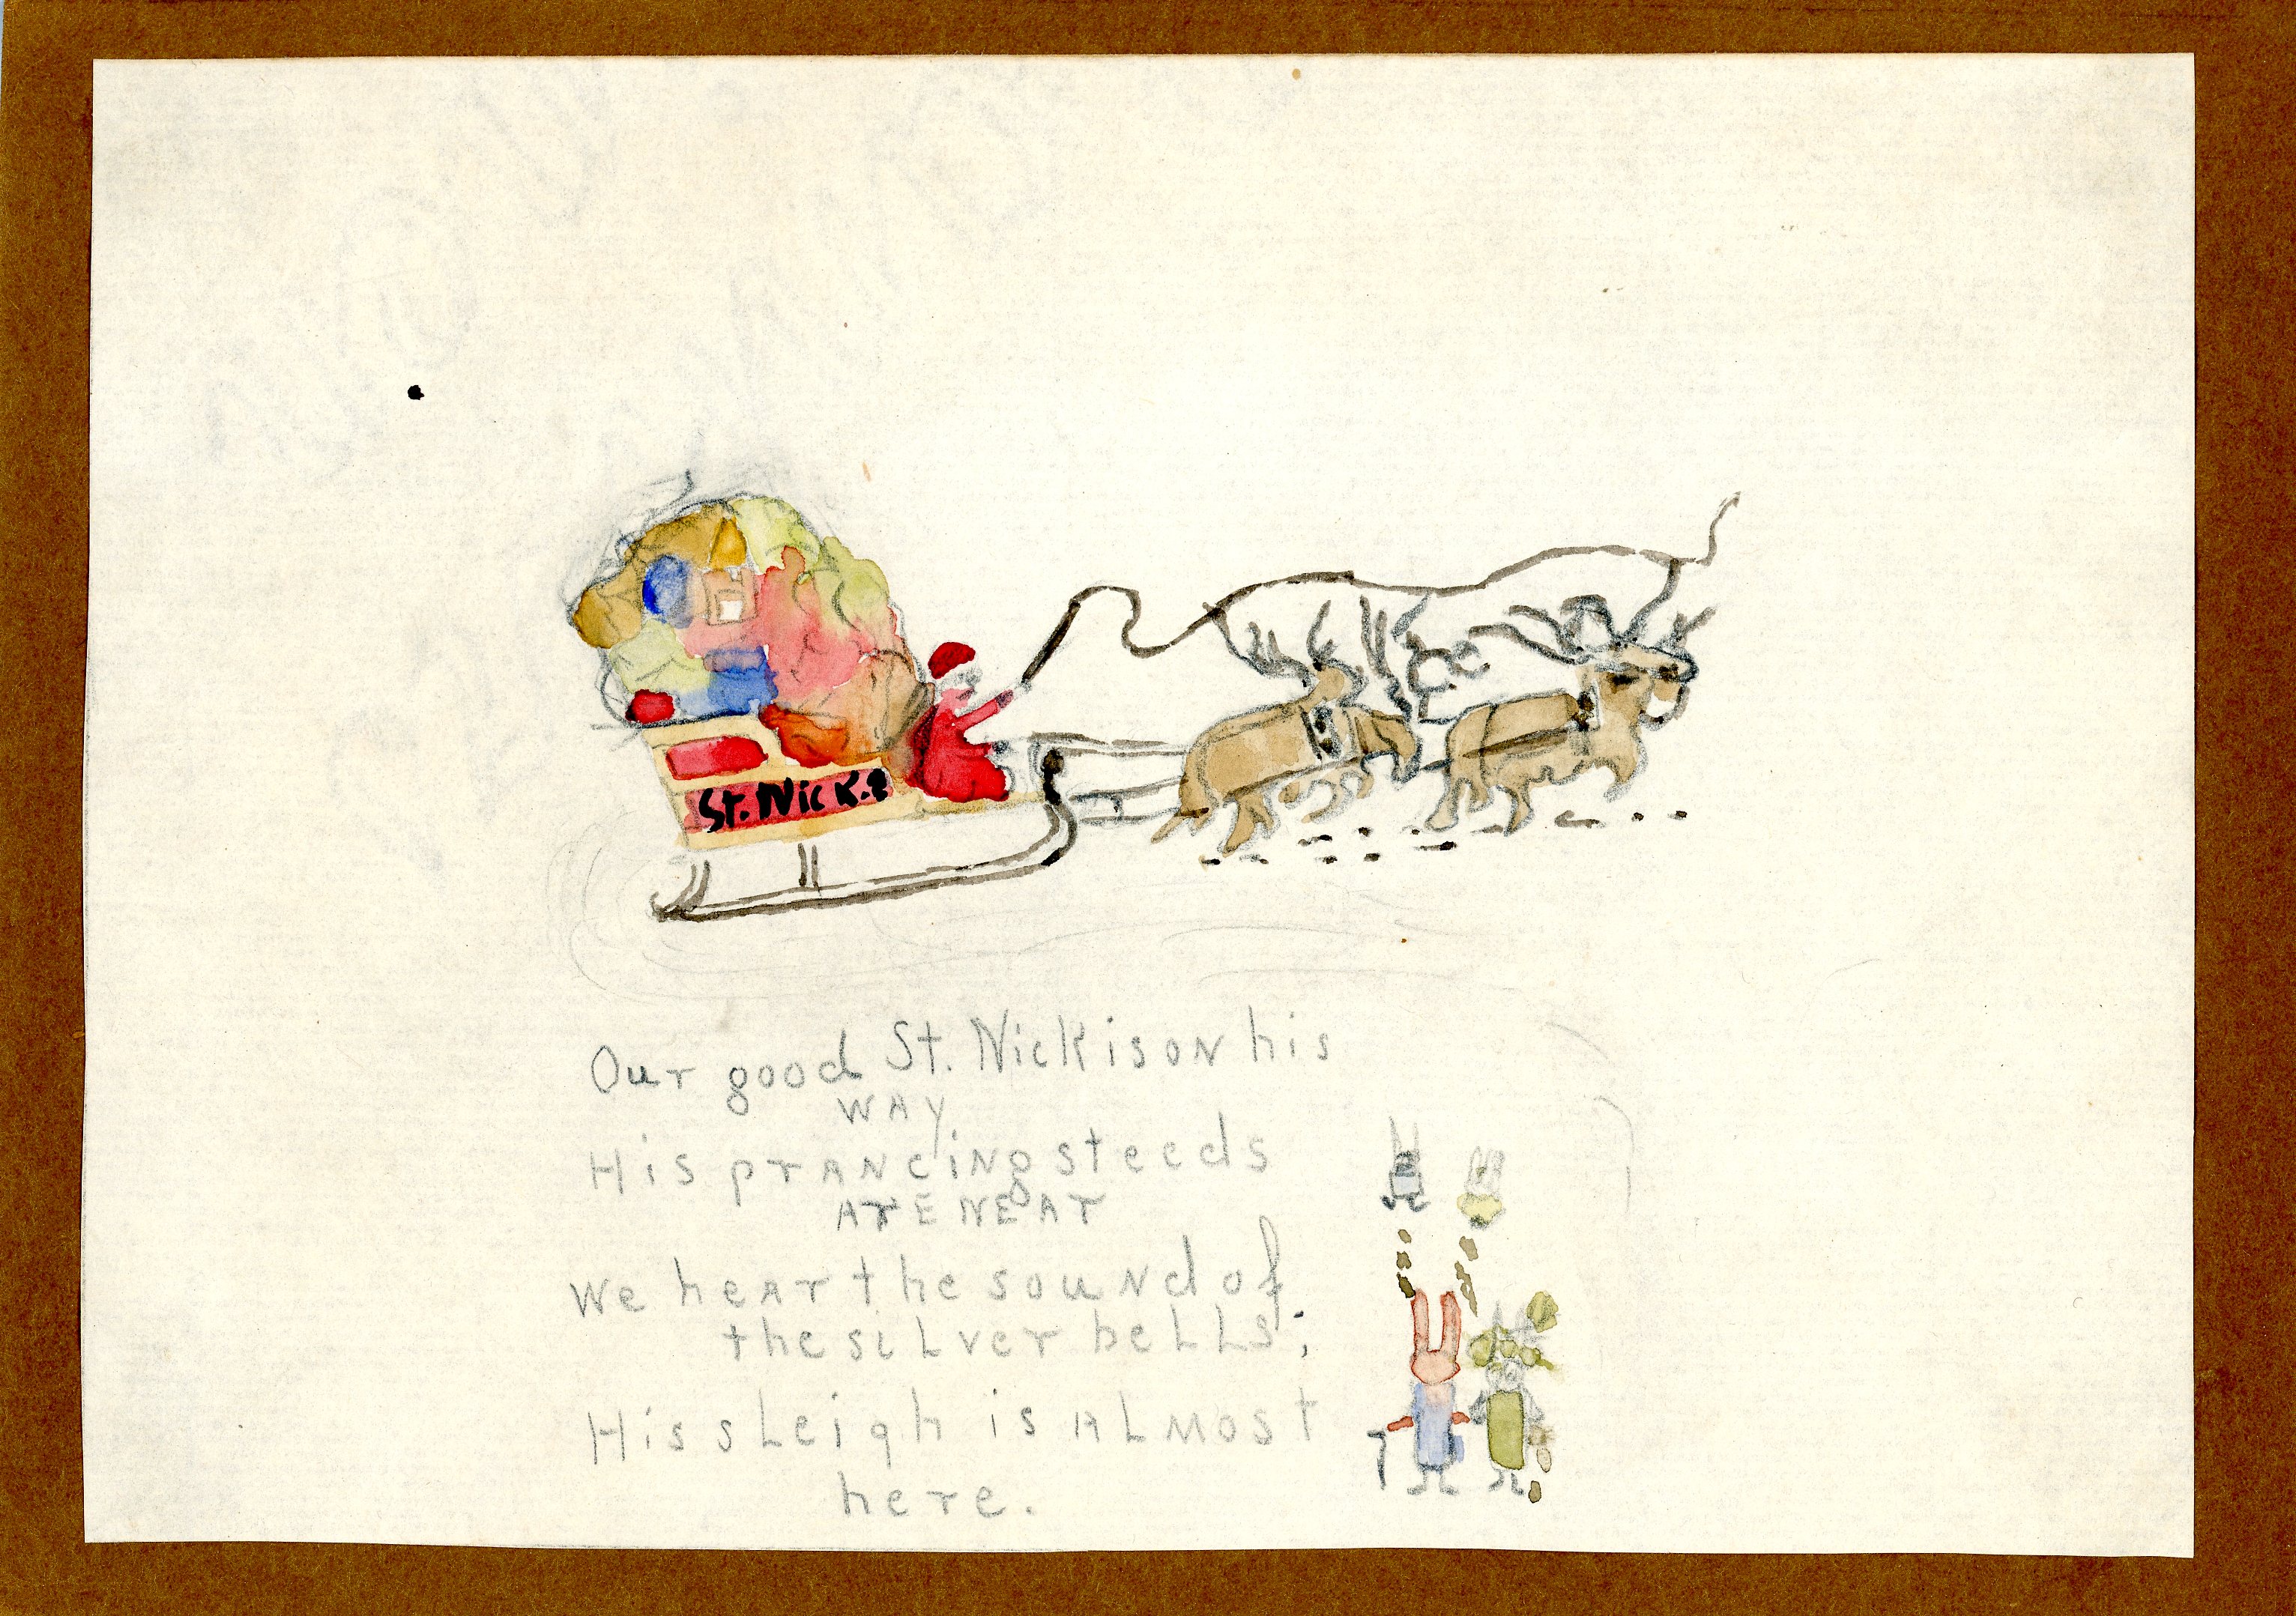 St. Nick.
Our good St. Nick is on his
way
His prancing steeds
are near
We hear the sound of
the silver bells;
His sleigh is almost
here.